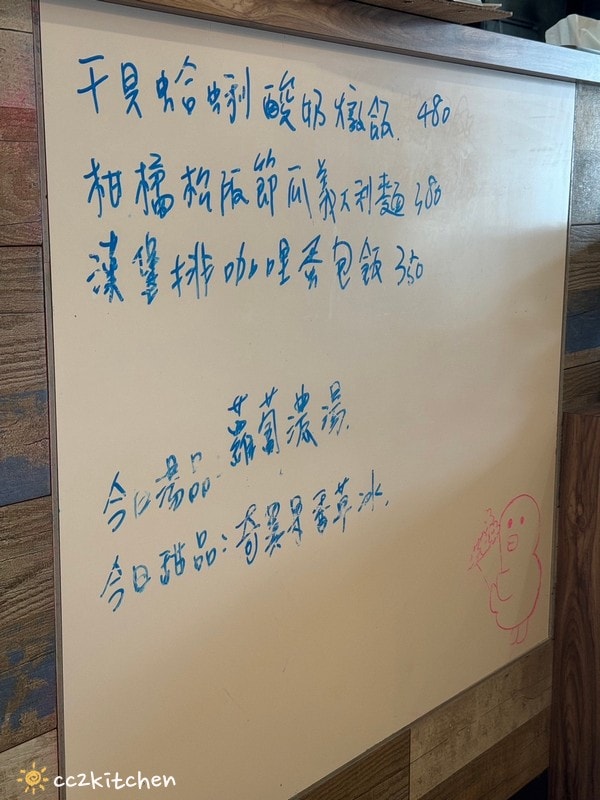 干貝蛤蜊酸奶燉飯. 480
柑橘松阪節瓜義大利麵 380
漢堡排咖哩蛋包飯 350
今日湯品: 蘿蔔濃湯.
今日甜品: 奇異果香草冰.
cc2kitchen